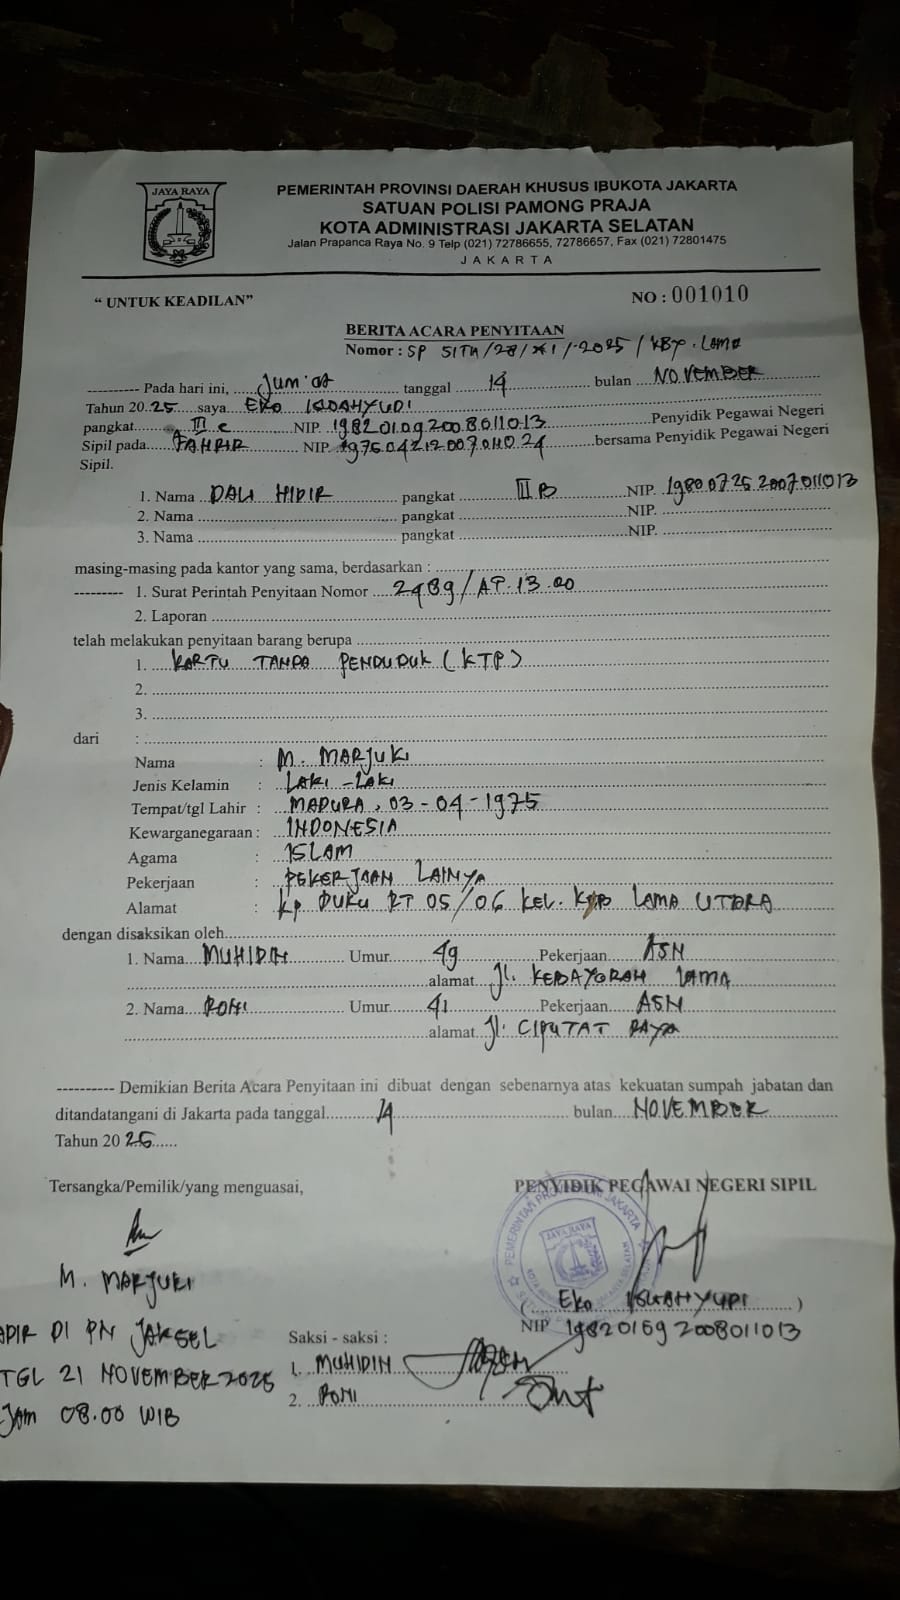 JAYA RAYA
PEMERINTAH PROVINSI DAERAH KHUSUS IBUKOTA JAKARTA
SATUAN POLISI PAMONG PRAJA
KOTA ADMINISTRASI JAKARTA SELATAN
Jalan Prapanca Raya No. 9 Telp (021) 72786655, 72786657, Fax (021) 72801475
JAKARTA
“ UNTUK KEADILAN”
NO : 001010
BERITA ACARA PENYITAAN
Nomor : SP SITA/28/XI/-2025 / KBY. LAMA
---------- Pada hari ini, Jum'at tanggal 14 bulan NOVEMBER
Tahun 20 25 saya EKO
pangkat III c NIP. Penyidik Pegawai Negeri
Sipil pada FAHRIR NIP bersama Penyidik Pegawai Negeri
Sipil.
1. Nama DALI HIDIR pangkat III B NIP. 19800725 2007011013
2. Nama pangkat NIP.
3. Nama pangkat NIP.
masing-masing pada kantor yang sama, berdasarkan :
--------- 1. Surat Perintah Penyitaan Nomor 2489/AT.13.00
2. Laporan
telah melakukan penyitaan barang berupa
1. KARTU TANDA PENDUDUK (KTP)
2.
3.
dari :
Nama : M. MARJUKI
Jenis Kelamin : LAKI-LAKI
Tempat/tgl Lahir : MADURA, 03-04-1975
Kewarganegaraan : INDONESIA
Agama : ISLAM
Pekerjaan : PEKERJAAN LAINYA
Alamat : KP. DUKU RT 05/06 KEL. LAMA UTARA
dengan disaksikan oleh
1. Nama MUHIDIN Umur 49 Pekerjaan ASN
alamat Jl. KEBAYORAN LAMA
2. Nama RONI Umur 41 Pekerjaan ASN
alamat Jl. CIPUTAT RAYA
---------- Demikian Berita Acara Penyitaan ini dibuat dengan sebenarnya atas kekuatan sumpah jabatan dan
ditandatangani di Jakarta pada tanggal 14 bulan NOVEMBER
Tahun 20 25
Tersangka/Pemilik/yang menguasai,
PENYIDIK PEGAWAI NEGERI SIPIL
M. MARJUKI
( EKO )
NIP
ADIR DI PN JAKSEL
TGL 21 NOVEMBER 2025
JAM 08.00 WIB
Saksi - saksi :
1. MUHIDIN
2. RONI